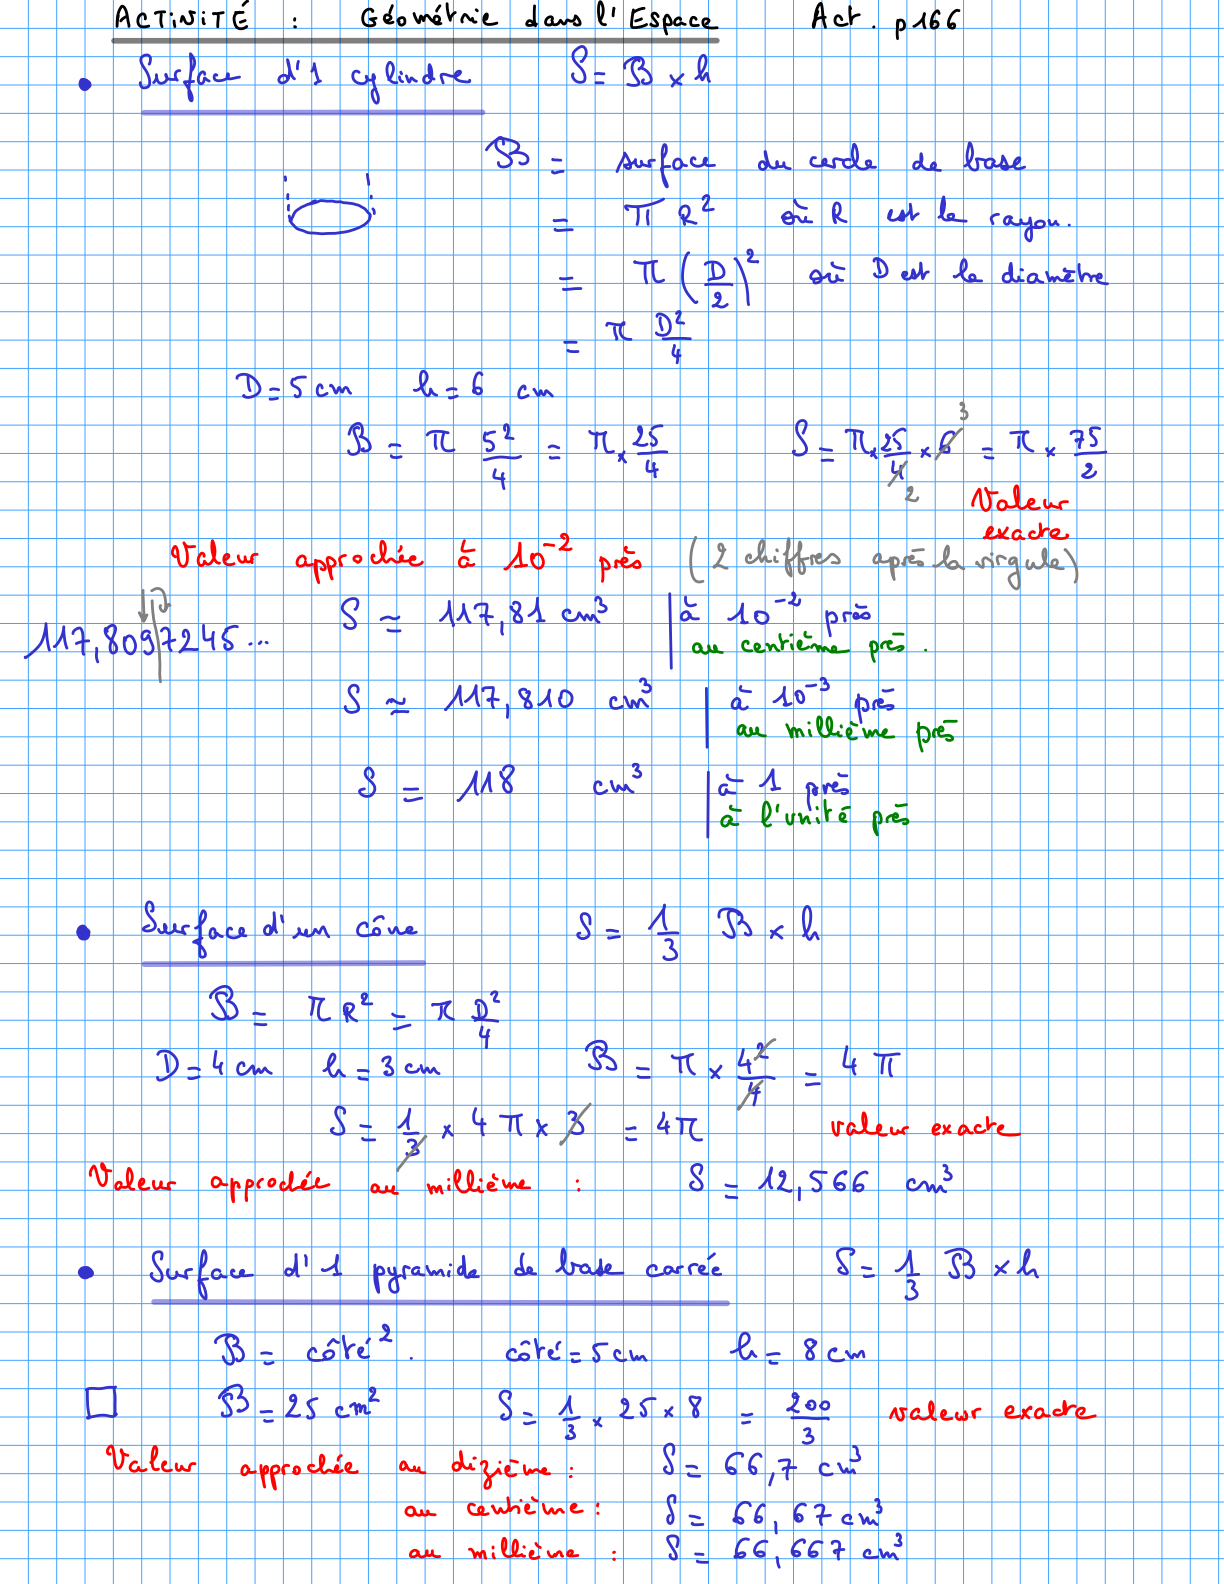 ACTIVITÉ : Géométrie dans l'Espace Act. p166
• Surface d'1 cylindre S = B × h
B = surface du cercle de base
= π R² où R est le rayon.
= π (D/2)² où D est le diamètre
= π D²/4
D = 5 cm h = 6 cm
B = π 5²/4 = π × 25/4 S = π × 25/4 × 6 = π × 75/2
3
2
Valeur
exacte
Valeur approchée à 10⁻² près (2 chiffres après la virgule)
S ≃ 117,81 cm³ à 10⁻² près
117,8097245... au centième près.
S ≃ 117,810 cm³ à 10⁻³ près
au millième près
S = 118 cm³ à 1 près
à l'unité près
• Surface d'un cône S = 1/3 B × h
B = π R² = π D²/4
D = 4 cm h = 3 cm B = π × 4²/4 = 4 π
S = 1/3 × 4 π × 3 = 4π valeur exacte
Valeur approchée au millième : S = 12,566 cm³
• Surface d'1 pyramide de base carrée S = 1/3 B × h
B = côté². côté = 5 cm h = 8 cm
B = 25 cm² S = 1/3 × 25 × 8 = 200/3 valeur exacte
Valeur approchée au dizième : S = 66,7 cm³
au centième : S = 66,67 cm³
au millième : S = 66,667 cm³